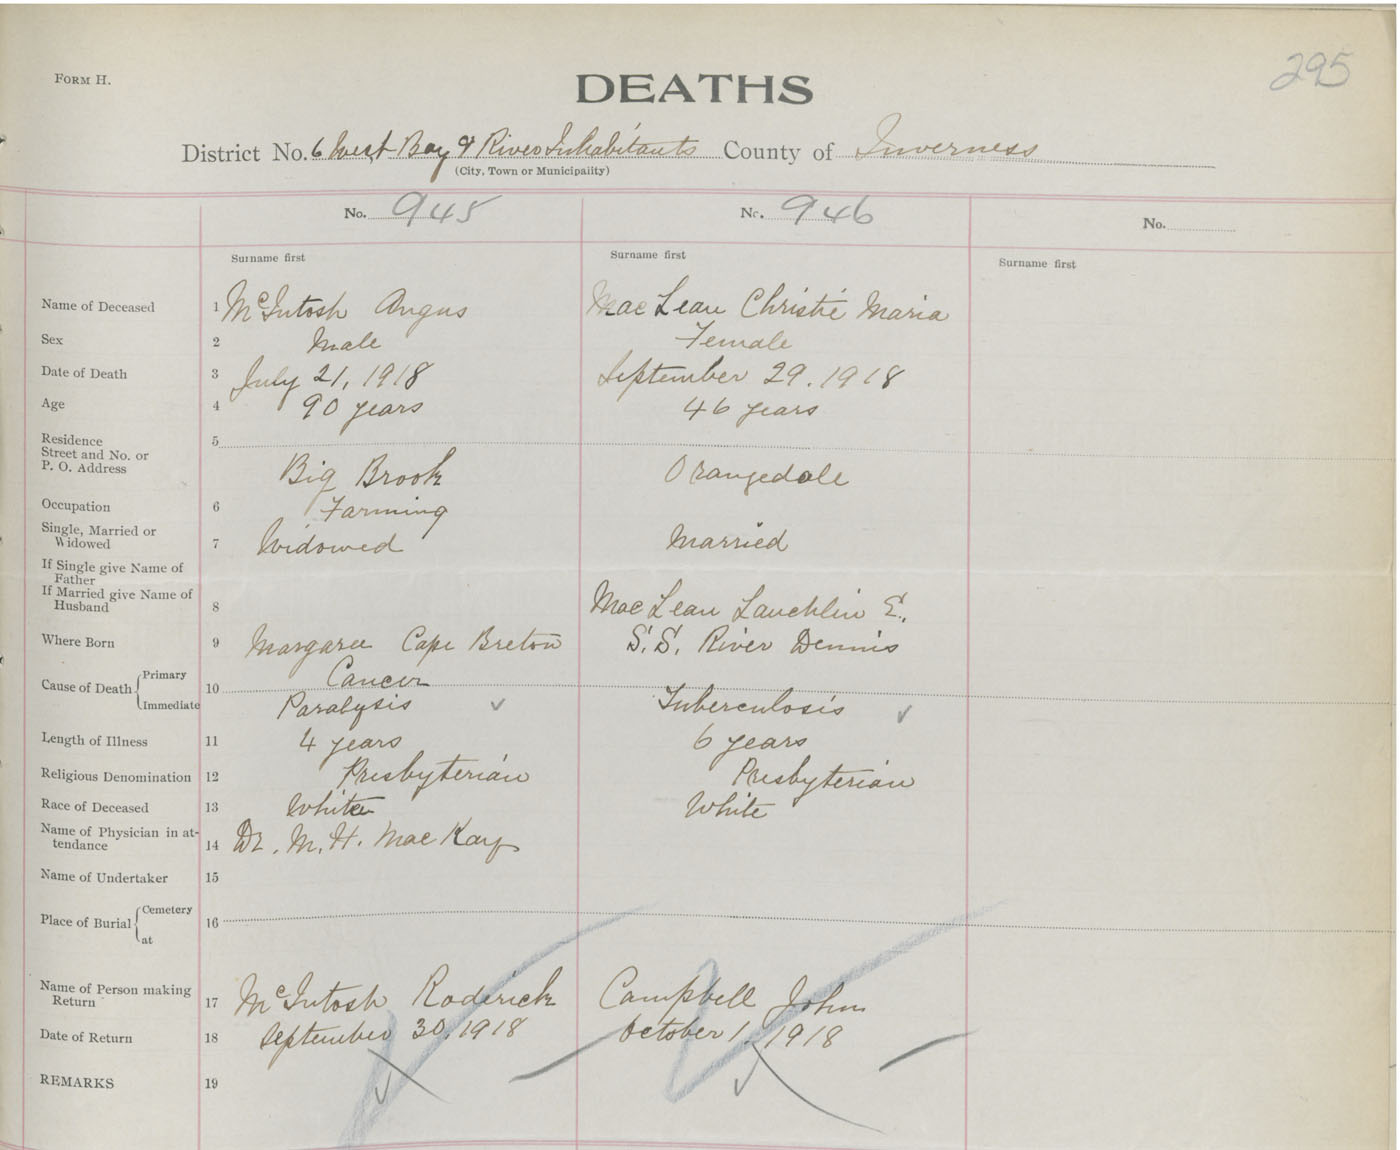 295
FORM H.
DEATHS
District No. 6 West Bay & River Inhabitants County of Inverness
(City, Town or Municipality)
No. 945 No. 946 No.
Surname first Surname first Surname first
Name of Deceased 1 McIntosh Angus MacLean Christie Maria
Sex 2 Male Female
Date of Death 3 July 21, 1918 September 29. 1918
Age 4 90 years 46 years
Residence 5
Street and No. or
P. O. Address Big Brook Orangedale
Occupation 6 Farming
Single, Married or
Widowed 7 Widowed Married
If Single give Name of
Father
If Married give Name of
Husband 8 MacLean Lauchlin E.
Where Born 9 Margaree Cape Breton S.S. River Dennis
Cause of Death { Primary 10 Cancer
Immediate Paralysis Tuberculosis
Length of Illness 11 4 years 6 years
Religious Denomination 12 Presbyterian Presbyterian
Race of Deceased 13 White White
Name of Physician in at-
tendance 14 Dr. M. H. MacKay
Name of Undertaker 15
Place of Burial { Cemetery 16
at
Name of Person making
Return 17 McIntosh Roderick Campbell John
Date of Return 18 September 30, 1918 October 1, 1918
REMARKS 19